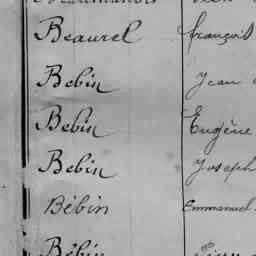 Beaurel François
Bebin Jean
Bebin Eugène
Bebin Joseph
Bébin Emmanuel
Bébin